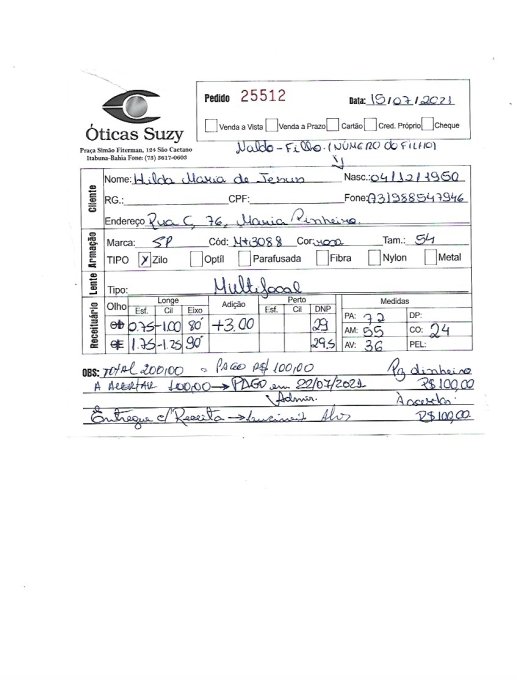 Pedido 25512 Data: 15/07/2021
Venda a Vista Venda a Prazo Cartão Cred. Próprio Cheque
Óticas Suzy
Praça Simão Fiterman, 124 São Caetano
Itabuna-Bahia Fone: (73) 3617-0603
Naldo - Filho. (NÚMERO do FILHO)
Cliente
Nome: Hilda Maria de Jesus Nasc.: 04/12/1950
RG.: CPF: Fone: (73)988547946
Endereço Rua C, 76, Maria Pinheiro.
Armação
Marca: SP Cód: M+3088 Cor: rosa Tam.: 54
TIPO X Zilo Optíl Parafusada Fibra Nylon Metal
Lente
Tipo: Multifocal
Receituário
Olho Longe Adição Perto DNP Medidas
Esf. Cil Eixo Esf. Cil
OD 0.75 -1.00 80° +3.00 29 PA: 72 DP:
AM: 55 CO: 24
OE 1.75 -1.25 90° 29,5 AV: 36 PEL:
OBS: TOTAL 200,00 = PAGO R$ 100,00 Pg dinheiro
A ACERTAR 100,00 → PAGO em 22/07/2021 R$ 100,00
Admir.
Entregue c/ Receita → R$ 100,00